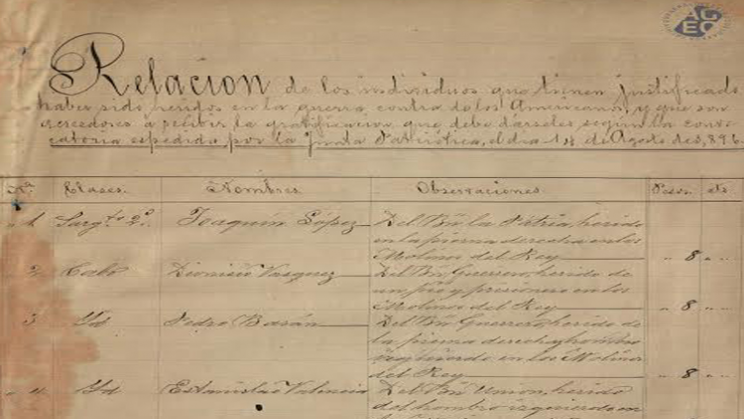 AG
EO
Relacion de los individuos que tienen justificado
haber sido heridos en la guerra contra de los Americanos, y que son
acreedores á recibir la gratificacion que debe dárseles segun la convo-
catoria espedida por la Junta Patriótica, el dia 18 de Agosto de 1,896.
No. Clases. Nombres. Observaciones. Pesos. cts.
1 Sargto. 2o. Joaquin López Del Bn. la Patria, herido
en la pierna derecha en los
Molinos del Rey 8
2 Cabo Dionisio Vasquez Del Bn. Guerrero, herido de
un pié y prisionero en los
Molinos del Rey 8
3 Id Pedro Basán Del Bn. Guerrero, herido de
la pierna derecha y hombro
izquierdo, en los Molinos
del Rey 8
4 Id Estanislao Valencia Del Bn. Union, herido
del hombro izquierdo en